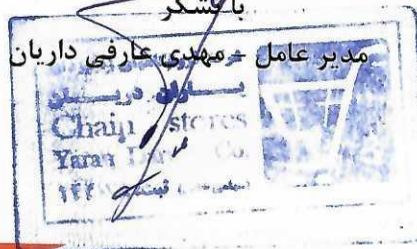 با تشکر
مدیر عامل - مهدی عارفی داریان
یاران دریان
Chain stores
Yaran Darian Co.